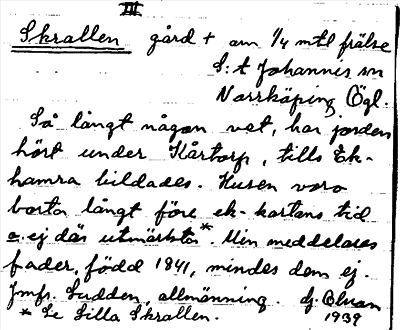 III
Skrallen gård + am 1/4 mtl frälse
S:t Johannis sn
Norrköping Ögl.
Så långt någon vet, har jorden
hört under Kårtorp, tills Ek-
hamra bildades. Husen voro
borta långt före ek-kartans tid
o. ej där utmärkta*. Min meddelares
fader, född 1841, mindes dem ej.
Jmfr. Sudden, allmänning.
* Se Lilla Skrallen. 1939